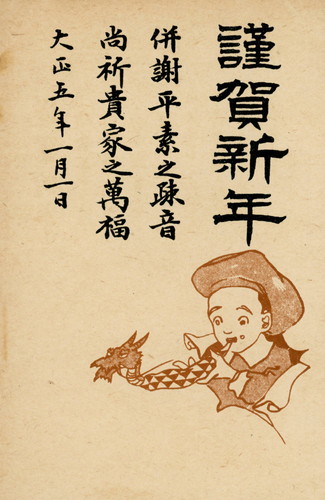 謹賀新年
併謝平素之疎音
尚祈貴家之萬福
大正五年一月一日